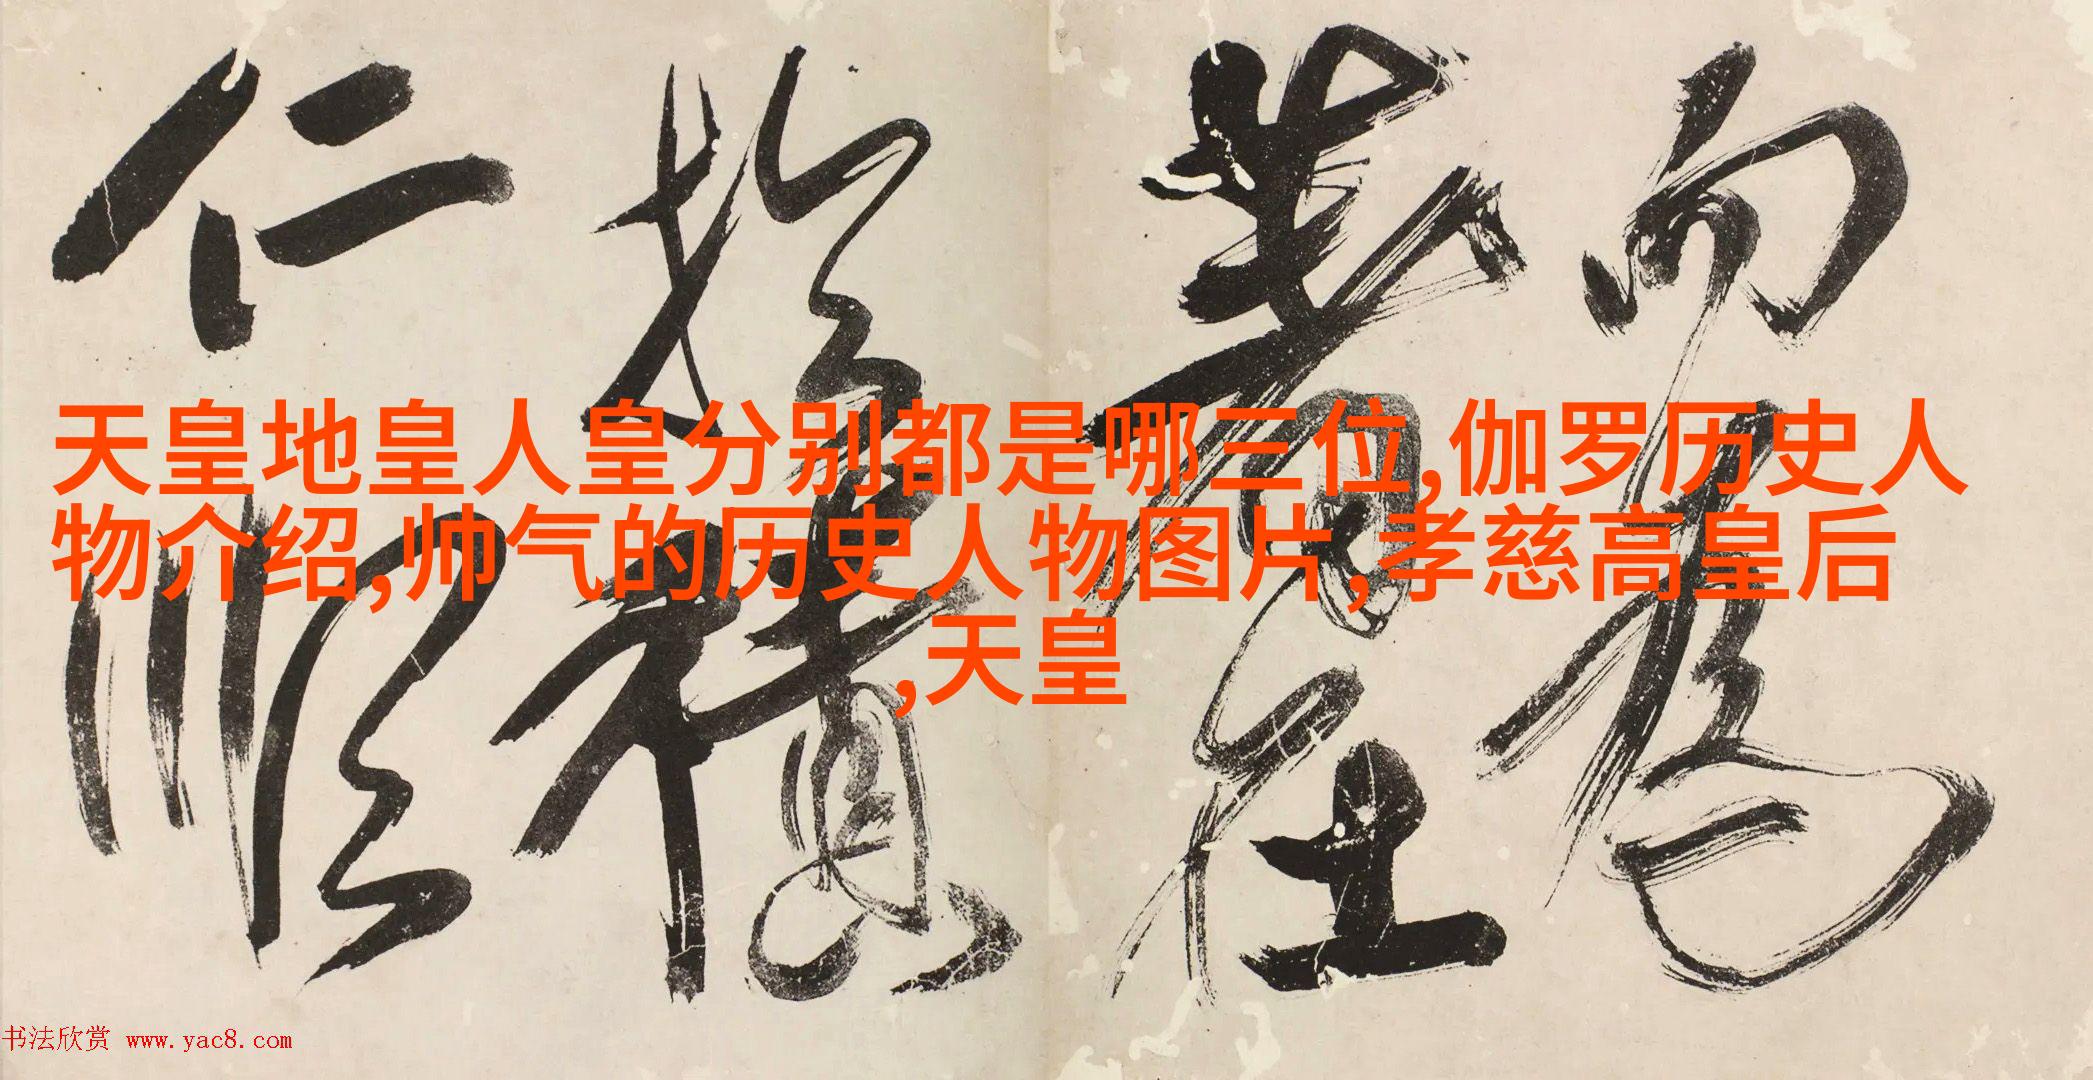 天皇地皇人皇分别都是哪三位,伽罗历史人
物介绍,帅气的历史人物图片,孝慈高皇后
,天皇
而为
在
于
积
仁
顺
书法欣赏 www.yac8.com